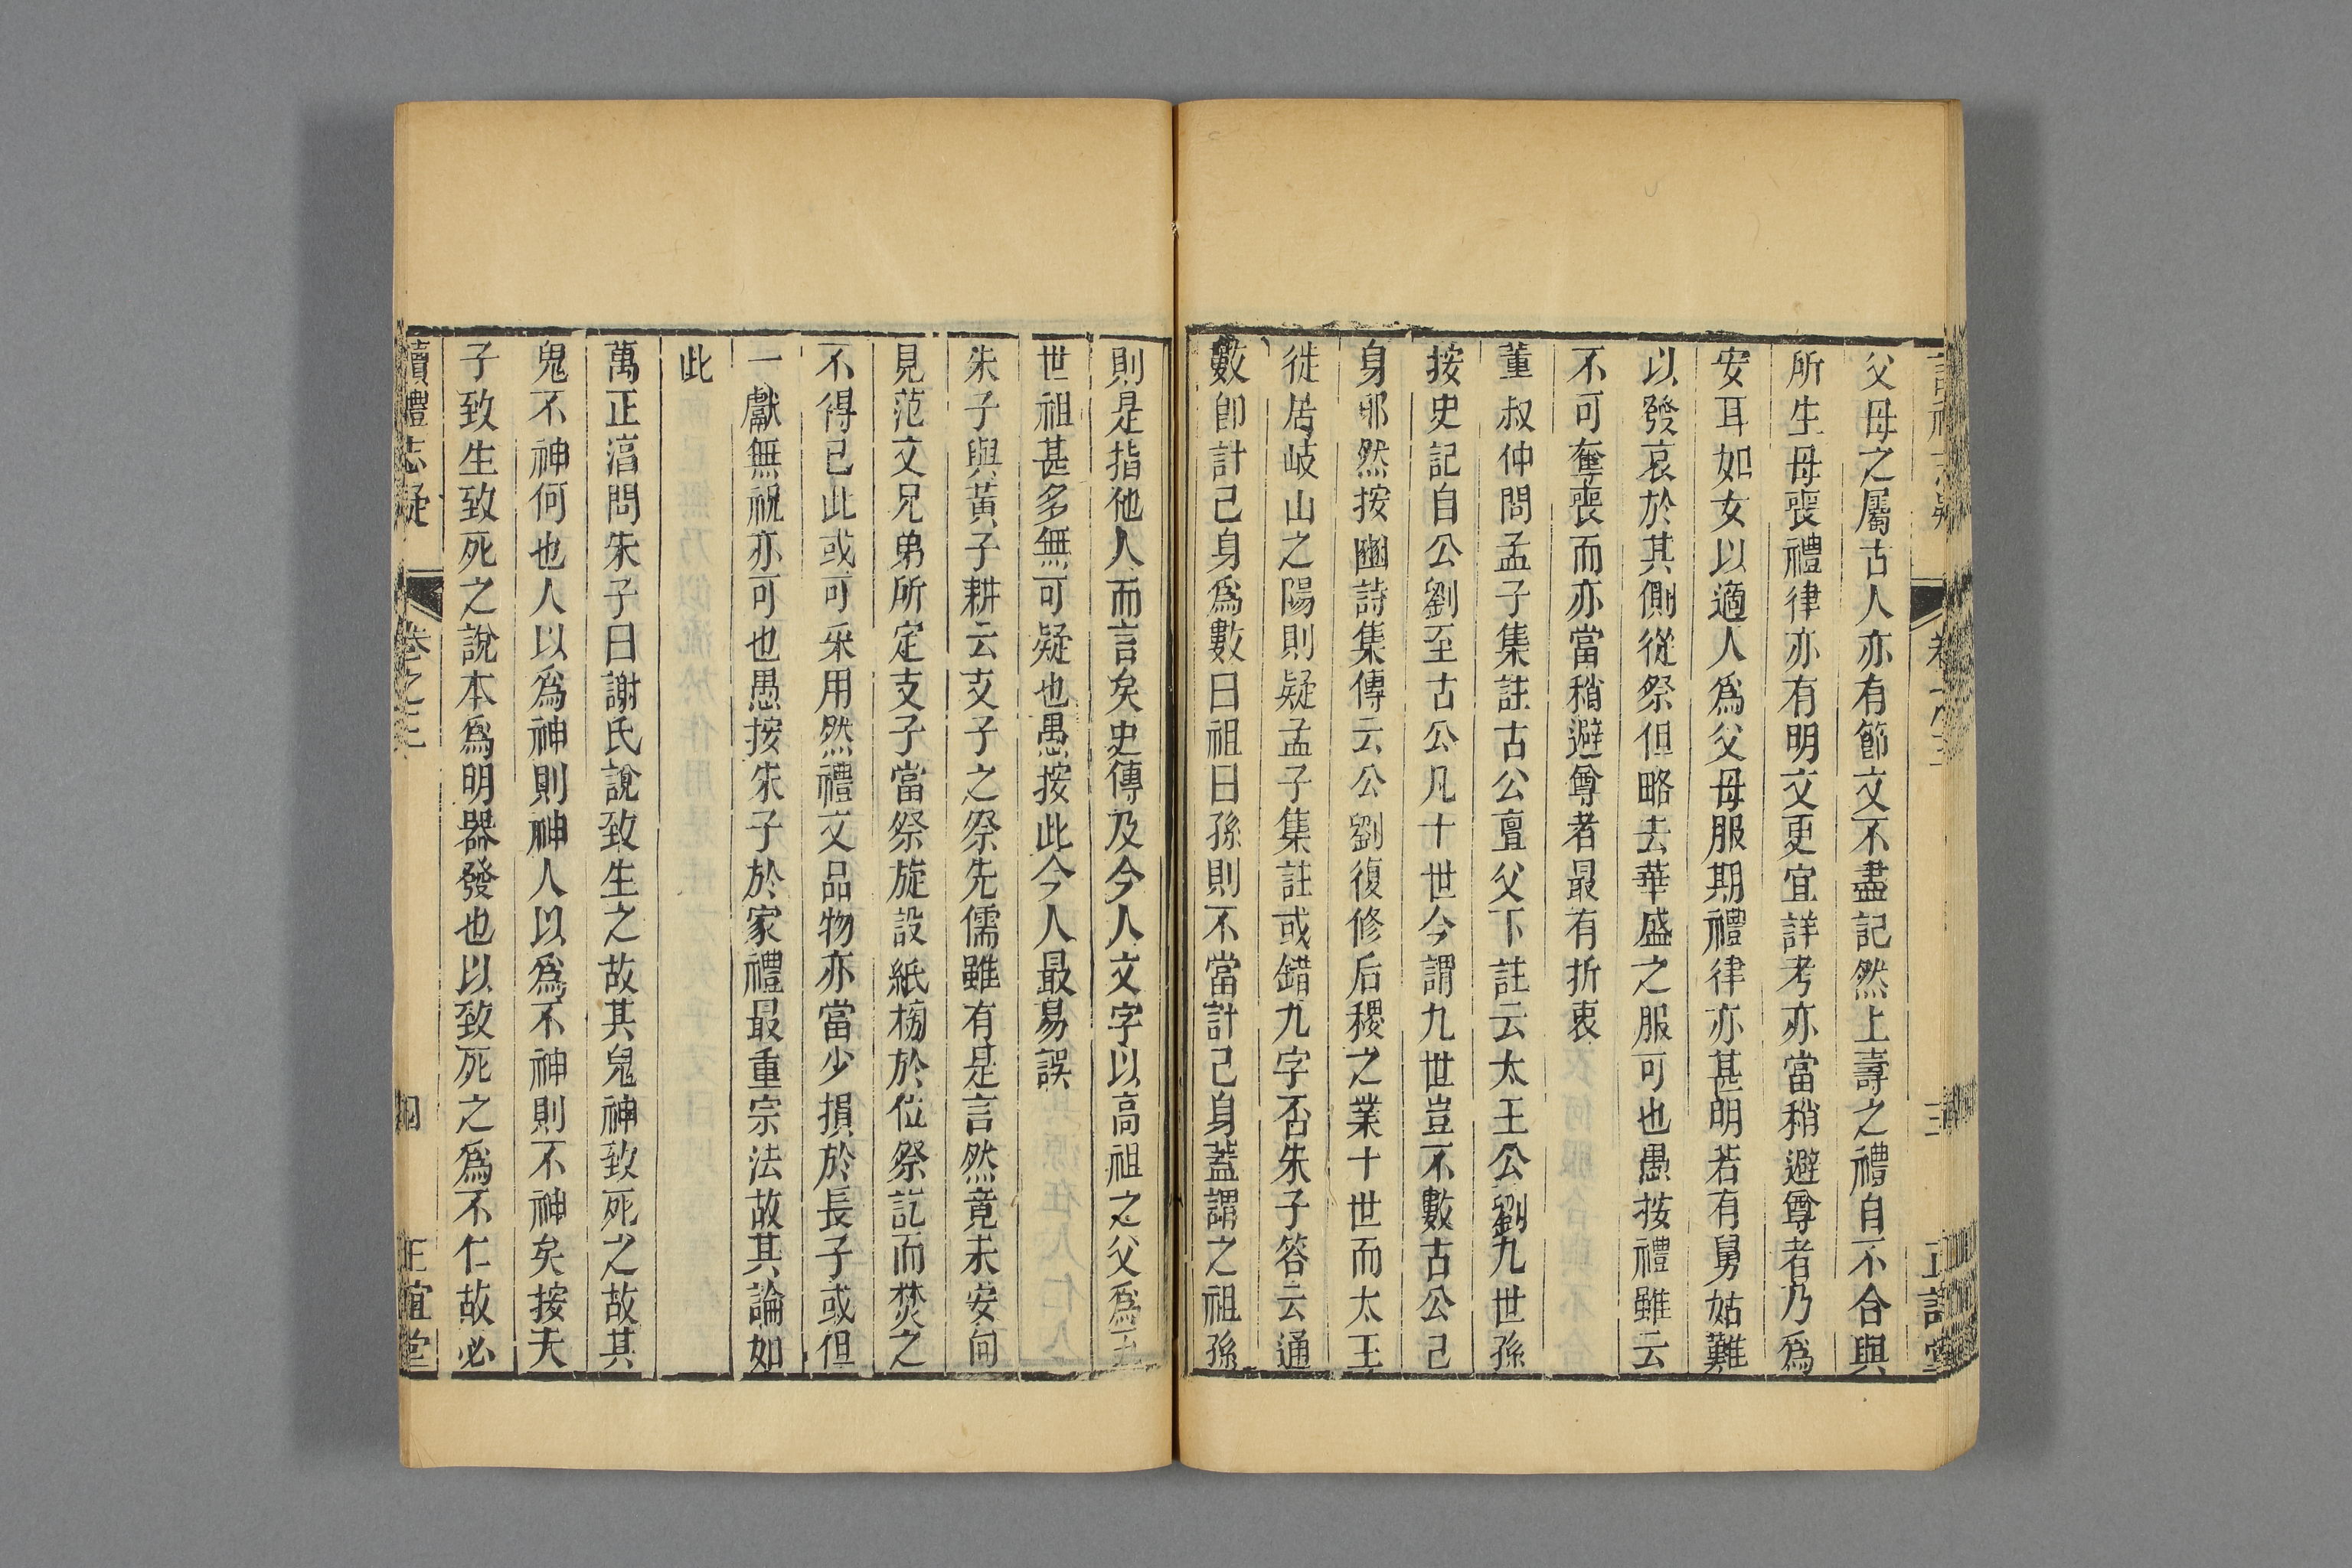 父母之屬古人亦有節文不盡記然上壽之禮自不合與
所生母喪禮律亦有明文更宜詳考亦當稍避尊者乃爲
安耳如女以適人爲父母服期禮律亦甚明若有舅姑難
以發哀於其側從祭但略去華盛之服可也愚按禮雖云
不可奪喪而亦當稍避尊者最有折衷
董叔仲問孟子集註古公亶父下註云太王公劉九世孫
按史記自公劉至古公凡十世今謂九世豈不數古公己
身耶然按豳詩集傳云公劉復修后稷之業十世而太王
徙居岐山之陽則疑孟子集註或錯九字否朱子答云通
數卽計己身爲數曰祖曰孫則不當計己身蓋謂之祖孫
則是指他人而言矣史傳及今人文字以高祖之父爲五
世祖甚多無可疑也愚按此今人最易誤
朱子與黃子耕云支子之祭先儒雖有是言然竟未安向
見范文兄弟所定支子當祭旋設紙榜於位祭訖而焚之
不得已此或可采用然禮文品物亦當少損於長子或但
一獻無祝亦可也愚按朱子於家禮最重宗法故其論如
此
萬正淳問朱子曰謝氏說致生之故其鬼神致死之故其
鬼不神何也人以爲神則神人以爲不神則不神矣按夫
子致生致死之說本爲明器發也以致死之爲不仁故必
讀禮志疑 卷之三 四 正誼堂